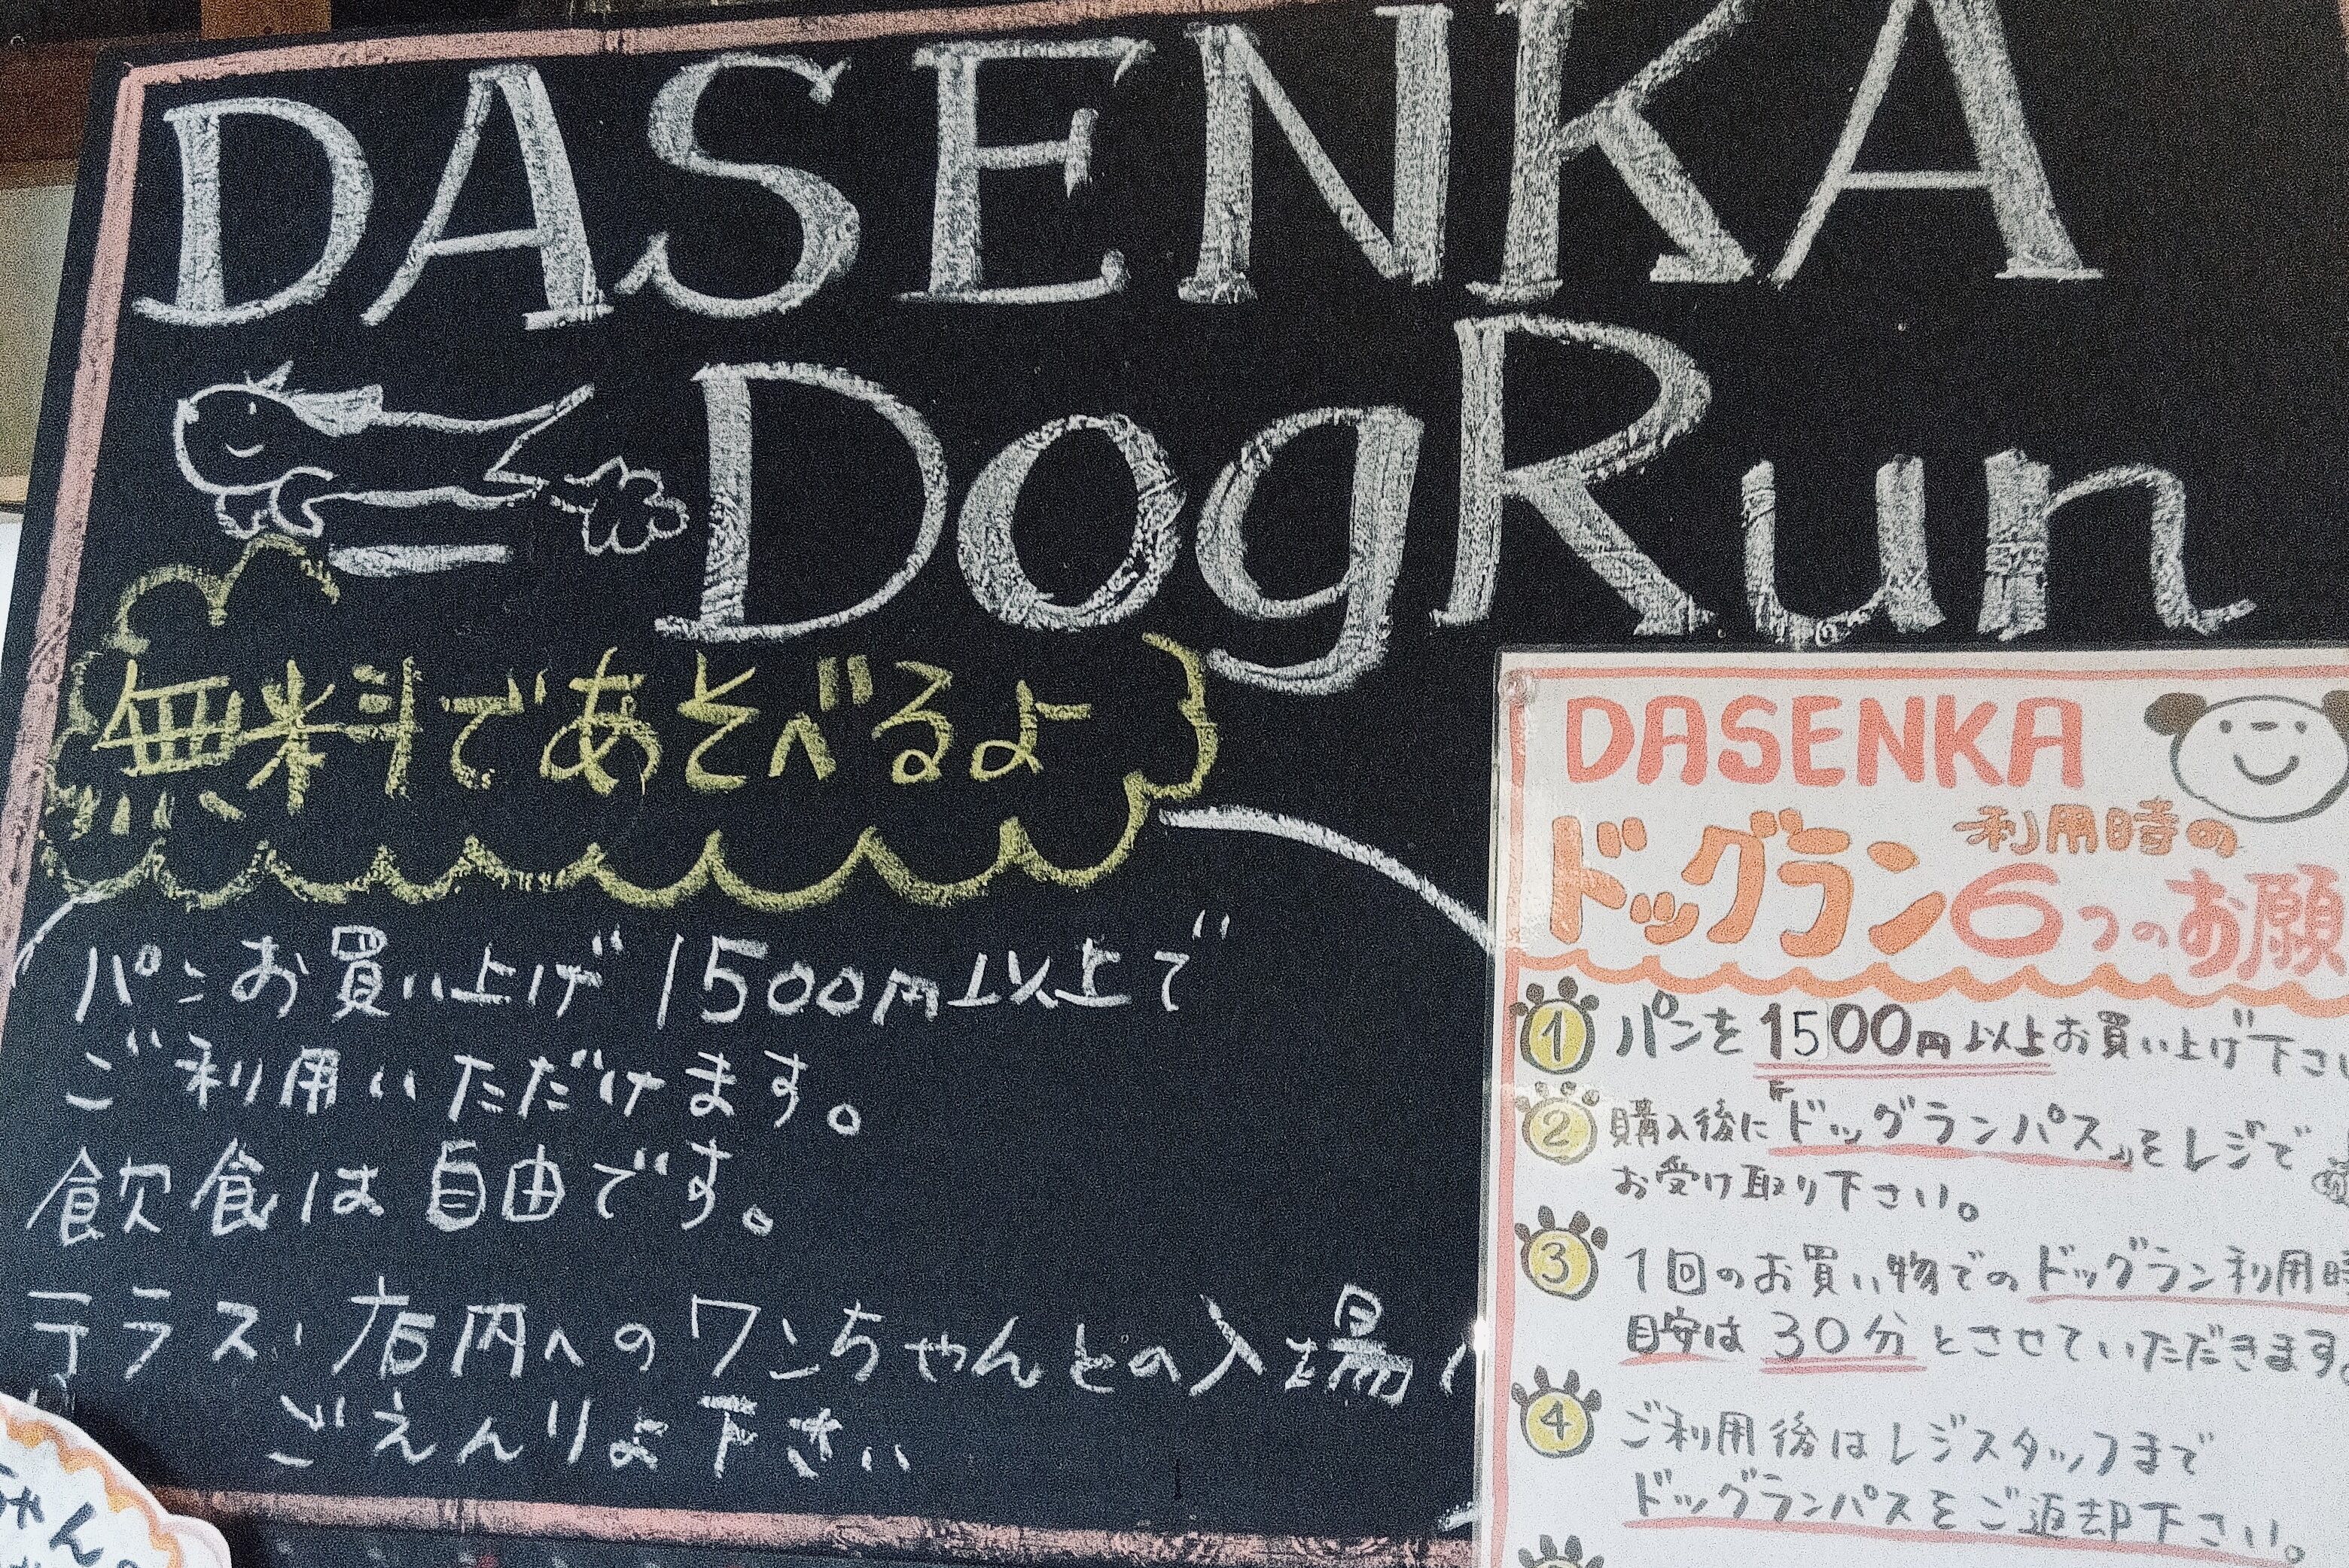 DASENKA
DogRun
無料であそべるよ
パンお買い上げ1500円以上で
ご利用いただけます。
飲食は自由です。
テラス、店内へのワンちゃんとの入場
ごえんりょ下さい
DASENKA
ドッグラン利用時の
6つのお願
1 パンを1500円以上お買い上げ下さ
2 購入後に「ドッグランパス」をレジで
お受け取り下さい。
3 1回のお買い物でのドッグラン利用時
目安は30分とさせていただきます。
4 ご利用後はレジスタッフまで
ドッグランパスをご返却下さい。
ちゃん